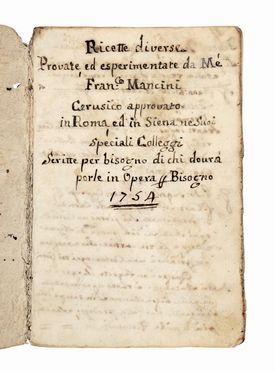 Ricette diverse
Provate ed esperimentate da Me
Fran.co Mancini
Cerusico approvato
in Roma, ed in Siena ne Suoi
speciali Colleggi
Scritte per bisogno di chi dovrà
porle in Opera p Bisogno
1754